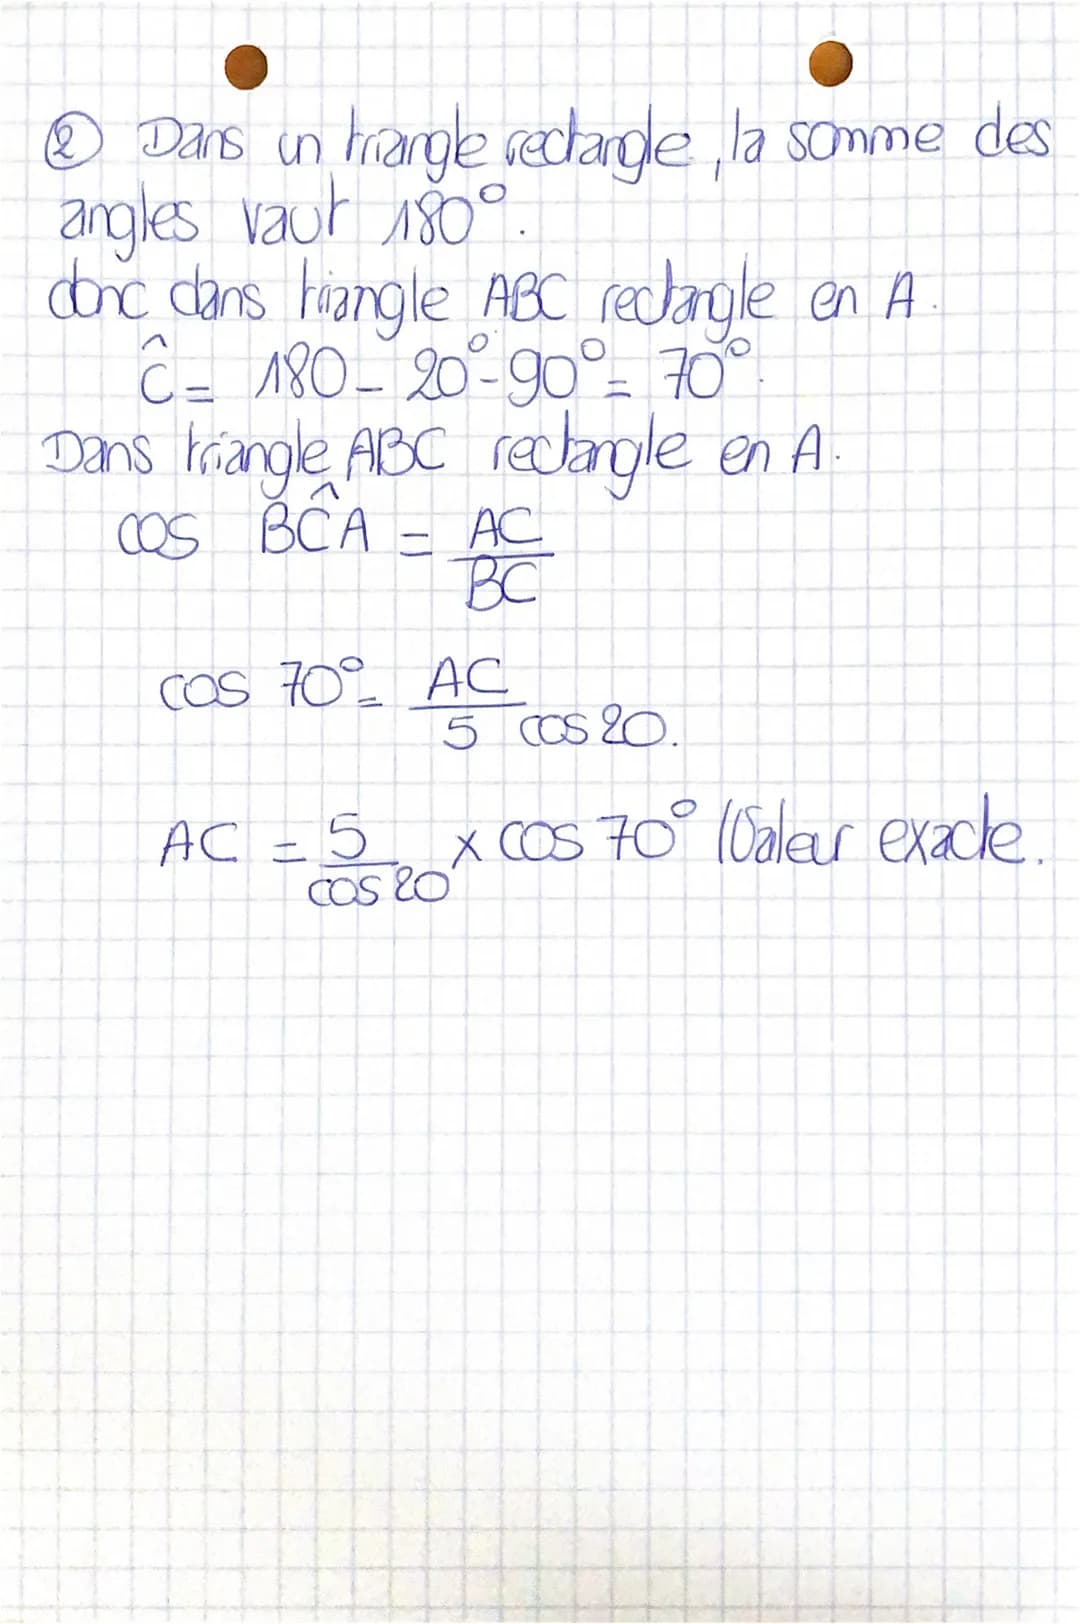 ② Dans un triangle rectangle, la somme des
angles vaut 180°.
donc dans triangle ABC rectangle en A.
Ĉ = 180 - 20° - 90° = 70°.
Dans triangle ABC rectangle en A.
cos BĈA = AC
BC
cos 70° = AC
5 cos 20.
AC = 5 x cos 70° (Valeur exacte.
cos 20